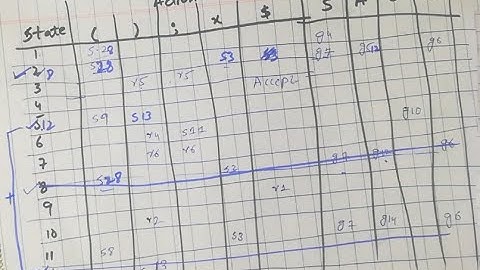 Action
State ( ) ; x $ S A
1 S28 g4
2,8 S28 S3 g7 g512 g6
3 r5 r5
4 Accept
512 S9 S13 g10
6 r4 S11
7 r6 r6
8 S28 S3 g7 g6
9 r1
10 r2
11 S8 S3 g7 g14 g6